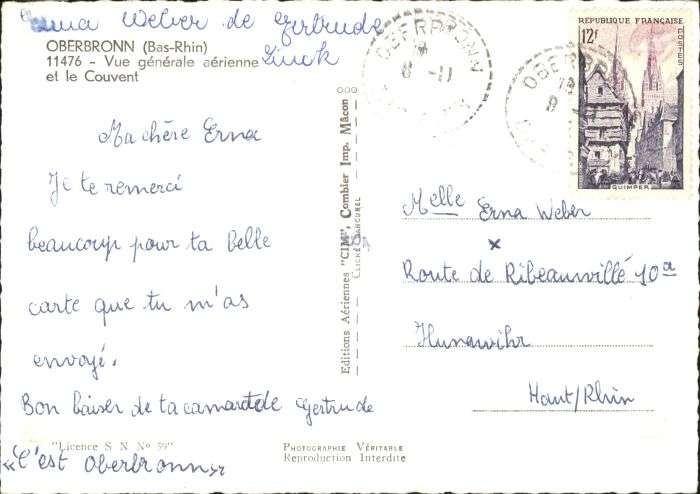 Erna Weber de Gertrude
Zinck
OBERBRONN (Bas-Rhin)
11476 - Vue générale aérienne
et le Couvent
Ma chère Erna
Je te remerci
beaucoup pour ta belle
carte que tu m'as
envoyé.
Bon baiser de ta camarade Gertrude
"Licence S N N° 59"
«C'est Oberbronn»
Editions Aériennes "CIM", Combier Imp. Mâcon
CLICHÉ
PHOTOGRAPHIE VÉRITABLE
Reproduction Interdite
OBERBRONN
OBERBR
REPUBLIQUE FRANÇAISE
12F
POSTES
QUIMPER
Melle Erna Weber
x
Route de Ribeauvillé 10a
Hunawihr
Haut/Rhin